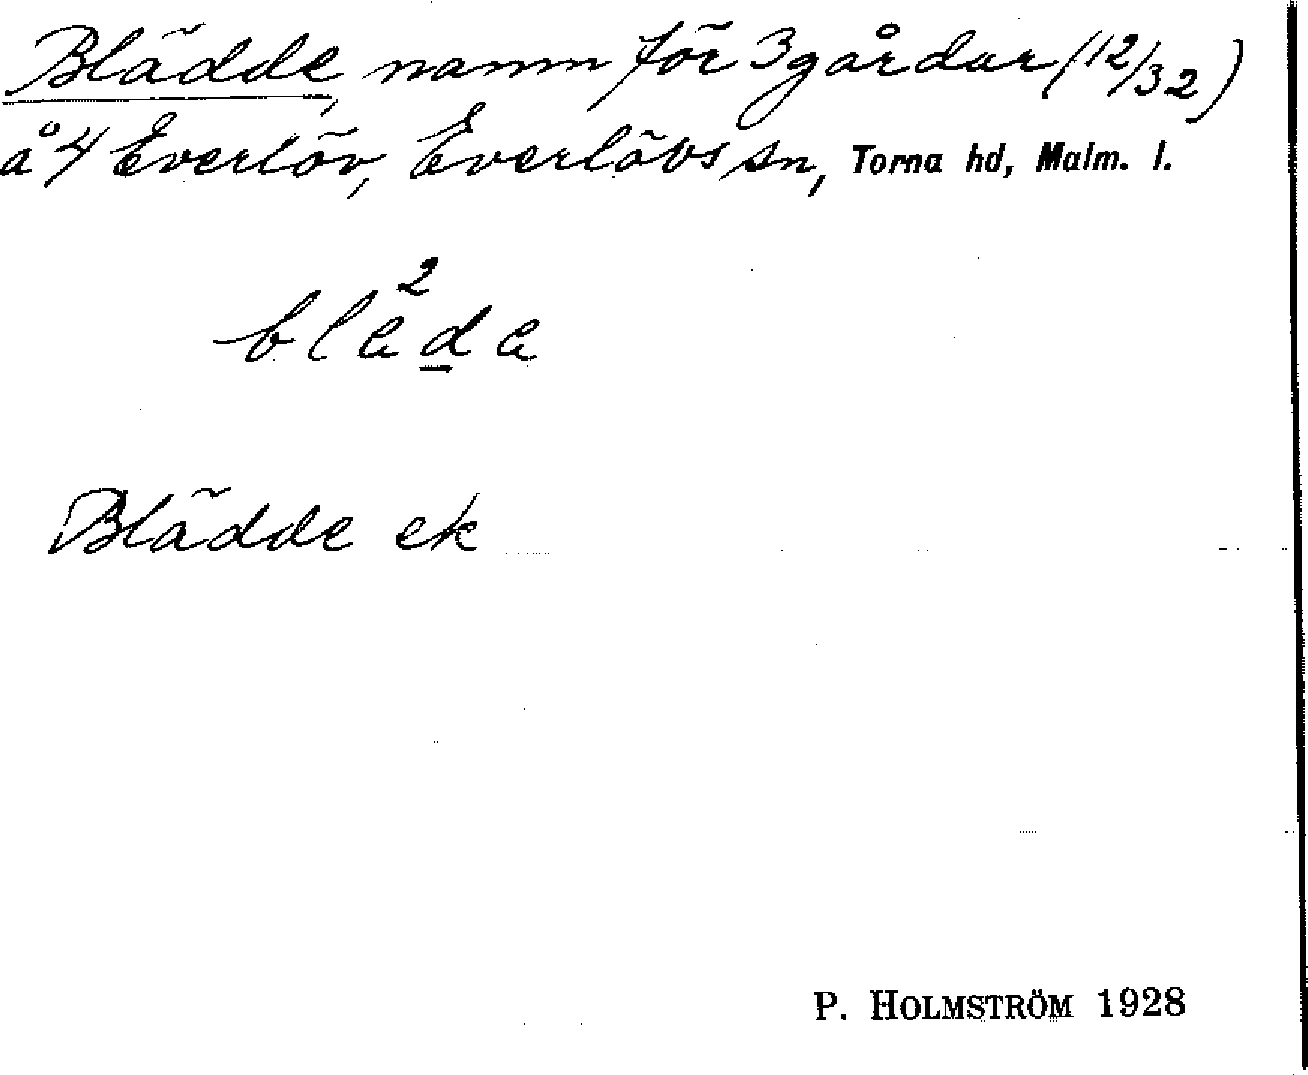 Blädde, namn för 3 gårdar (12/32)
å 4 Everlöv, Everlövs sn, Torna hd, Malm. l.
Blädde ek
P. HOLMSTRÖM 1928